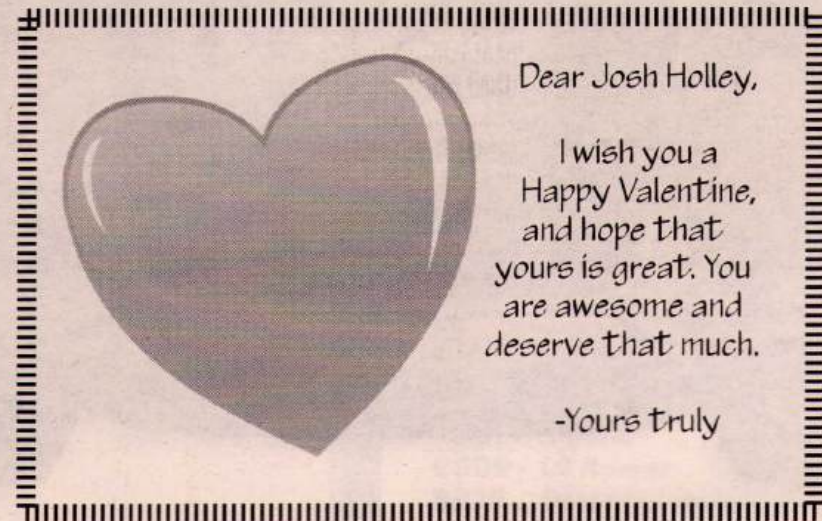 Dear Josh Holley,
I wish you a
Happy Valentine,
and hope that
yours is great. You
are awesome and
deserve that much.
-Yours truly